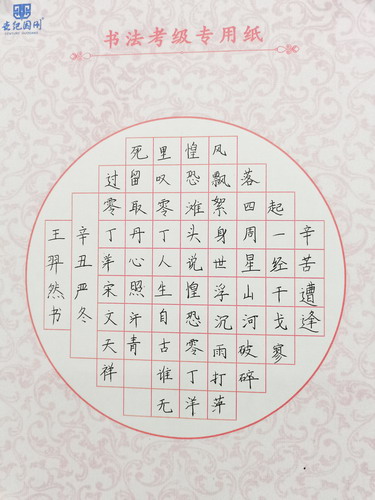 书法考级专用纸
辛苦遭逢
起一经干戈寥
落四周星山河破碎
风飘絮身世浮沉雨打萍
惶恐滩头说惶恐零丁洋
里叹零丁人生自古谁无
死留取丹心照汗青
过零丁洋宋文天祥
辛丑严冬
王羿然书